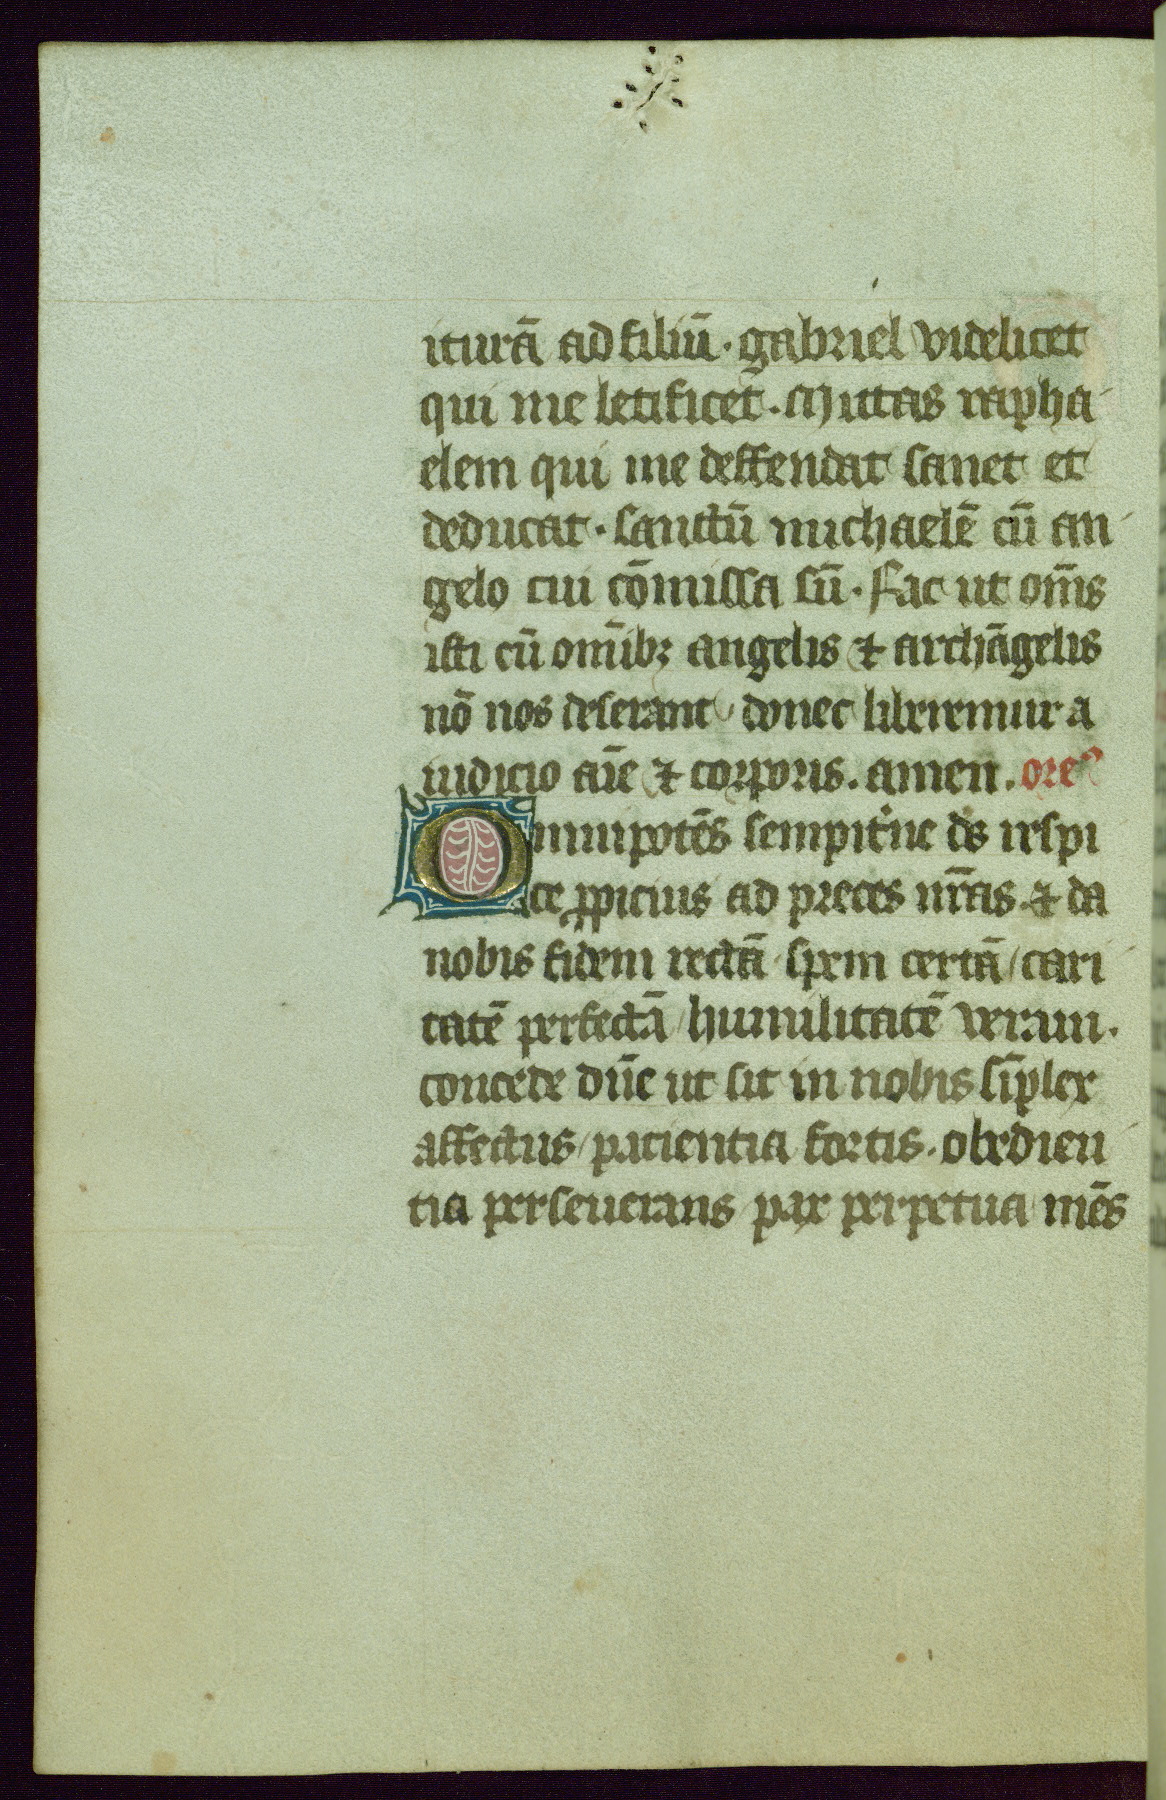 iturā ad filiū. gabriel videlicet
qui me letificet. Mittas rapha
elem qui me deffendat sanet et
deducat. sanctū michaelē cū an
gelo cui cōmissa sū. Fac ut om̄s
isti cū omībꝫ angelis ⁊ archāgelis
nō nos deserant / donec liberemur a
iudicio aīe ⁊ corporis. amen. ore
Omnipotēs sempitͥne dˢ respi
ce ꝓpicius ad preces nr̄as. ⁊ da
nobis fidem rectā / spem certā / cari
tatē perfectā / humilitatē veram.
concede dn̄e ut sit in nobis sīplex
affectus / pacientia fortis. obedien
tia perseuerans pax perpetua / mēs